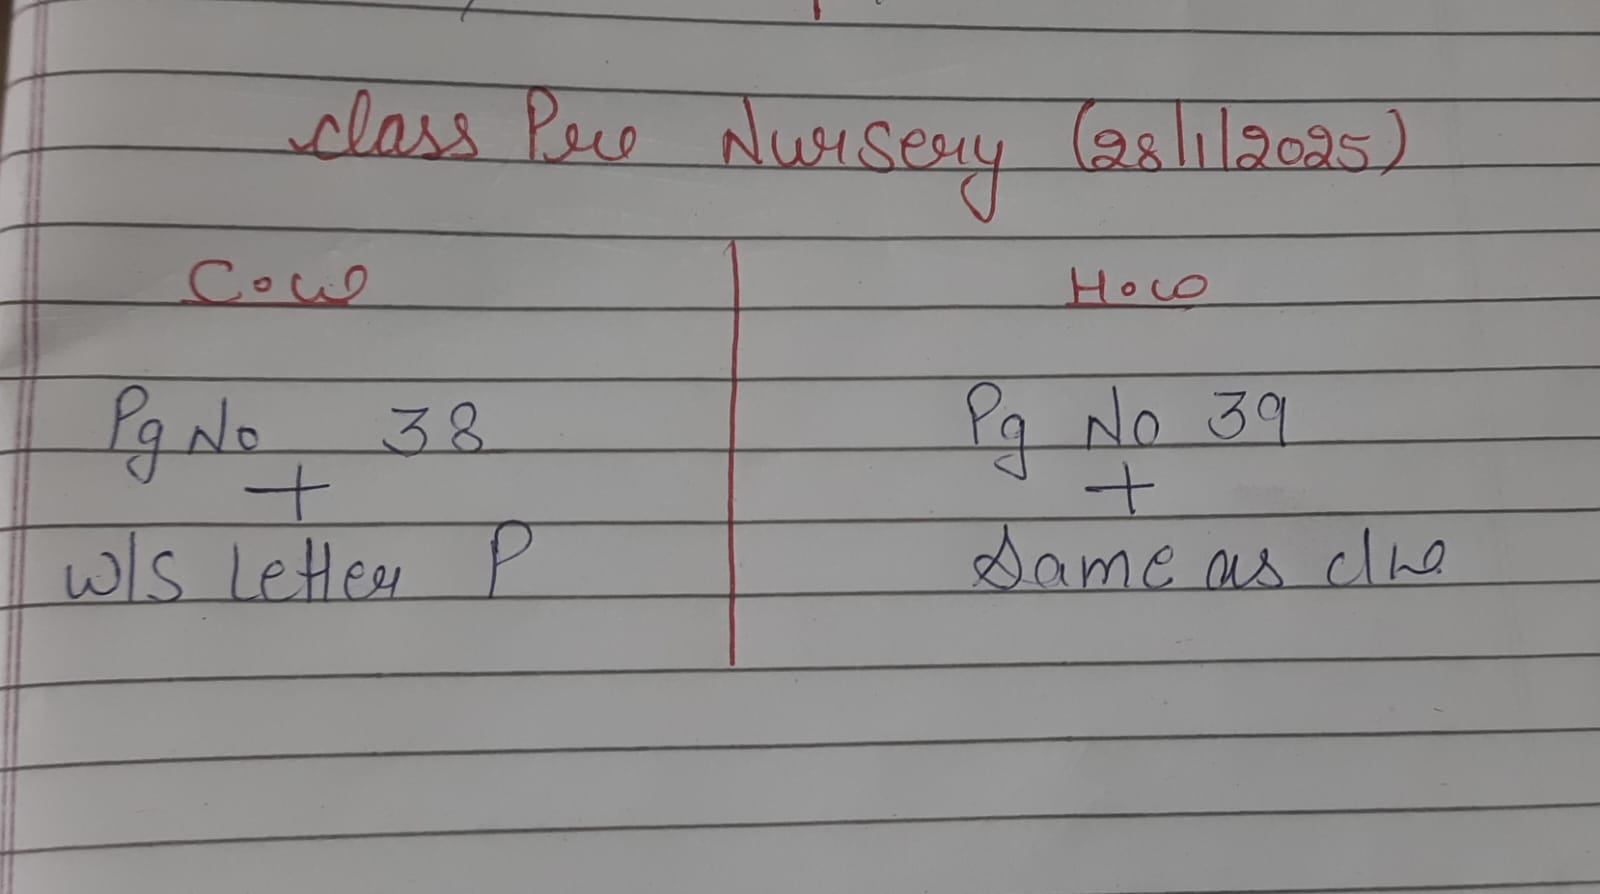 class Pre Nursery (28/1/2025)
C.w
H.w
Pg No 38
+
w/s Letter P
Pg No 39
+
Same as c/w